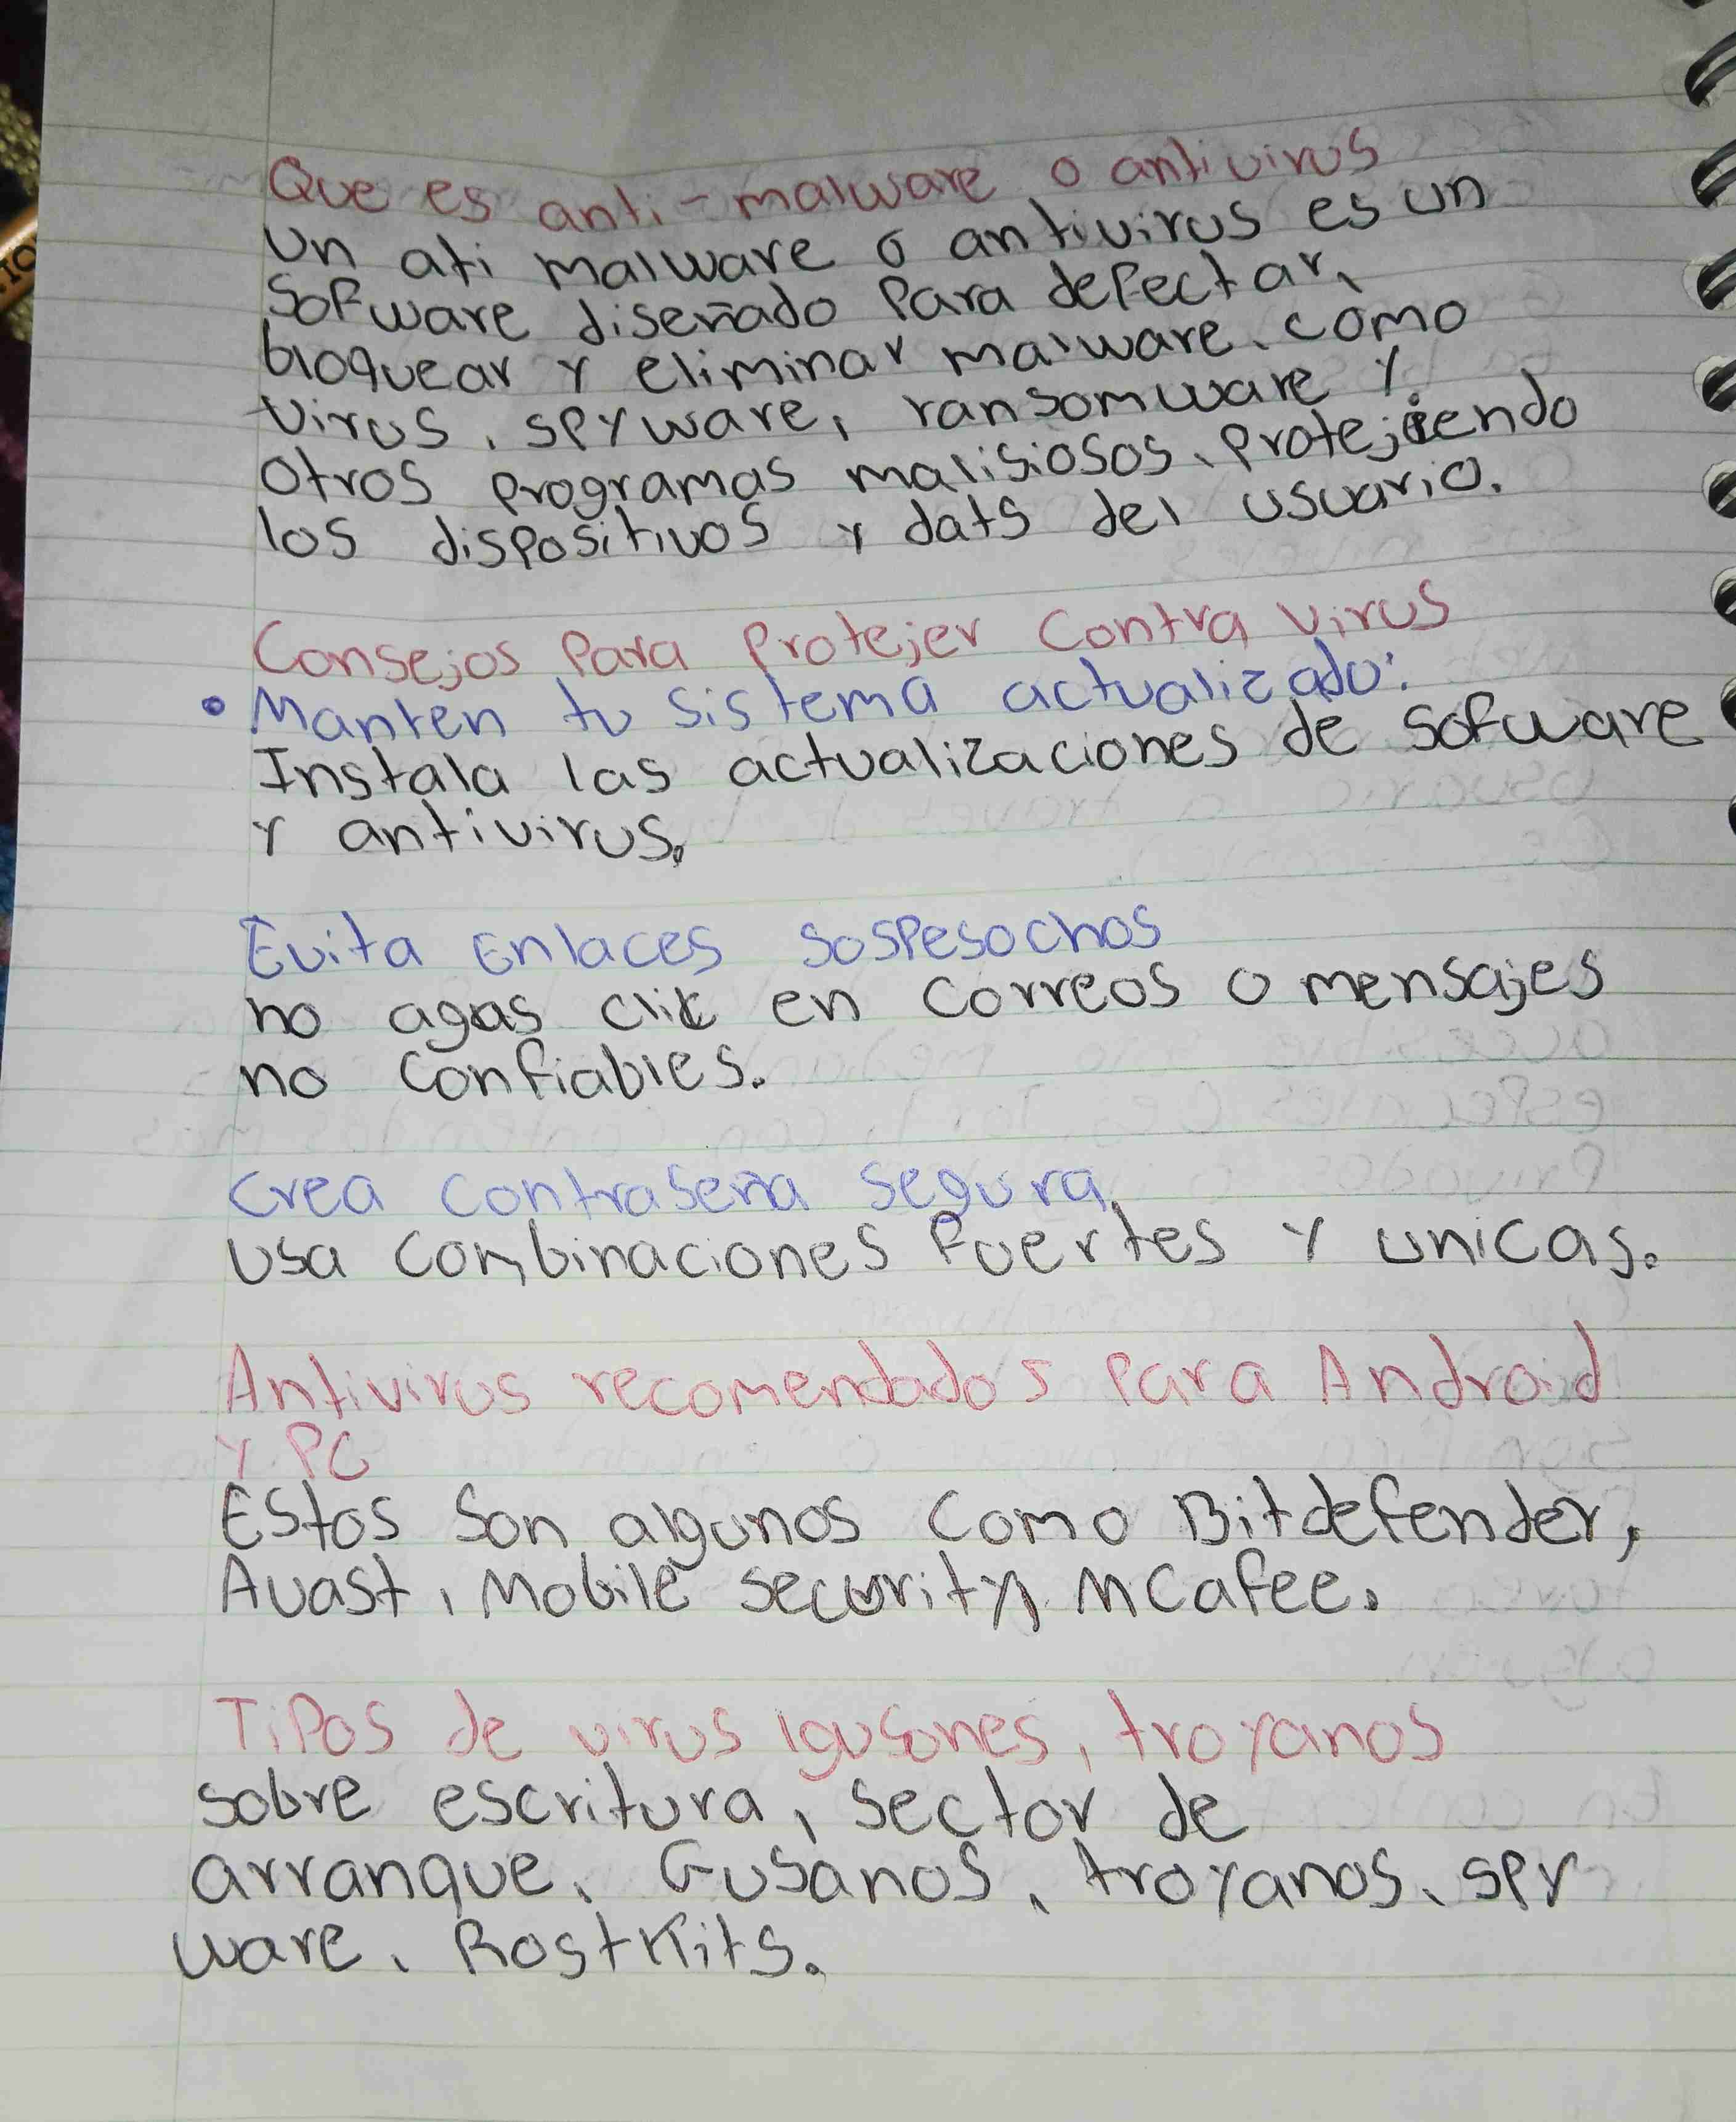 Que es anti-malware o antivirus
Un ati malware o antivirus es un
Sofware diseñado para defectar,
bloquear y eliminar malware, como
virus, spyware, ransomware y
otros programas malisiosos, protejiendo
los dispositivos y dats del usuario.
Consejos para protejer contra virus
• Manten tu sistema actualizado:
Instala las actualizaciones de sofware
y antivirus.
Evita Enlaces sospesochos
no agas clik en correos o mensajes
no confiables.
Crea contraseña segura.
Usa combinaciones fuertes y unicas.
Antivirus recomendados para Android
y PC
Estos son algunos como Bitdefender,
Avast, Mobile security, MCafee.
Tipos de virus, troyanos
sobre escritura, sector de
arranque, Gusanos, troyanos, spy
ware, Rostkits.